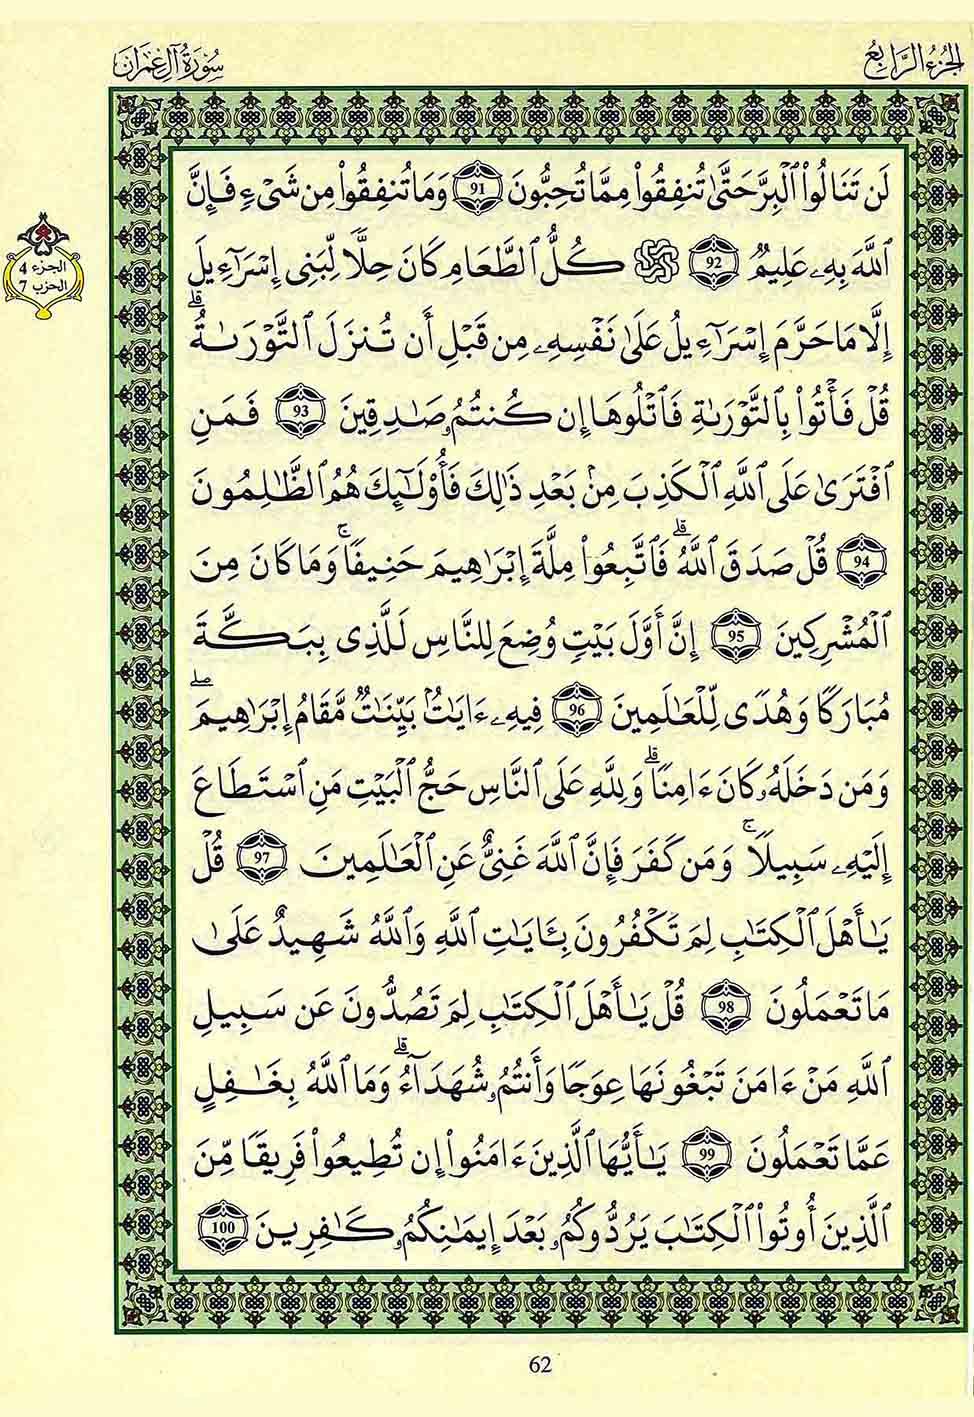 الجزء الرابع
سورة آل عمران
لَن تَنَالُوا۟ ٱلْبِرَّ حَتَّىٰ تُنفِقُوا۟ مِمَّا تُحِبُّونَ 91 وَمَا تُنفِقُوا۟ مِن شَىْءٍ فَإِنَّ
ٱللَّهَ بِهِۦ عَلِيمٌ 92 ۞ كُلُّ ٱلطَّعَامِ كَانَ حِلًّا لِّبَنِى إِسْرَآءِيلَ
الجزء 4
الحزب 7
إِلَّا مَا حَرَّمَ إِسْرَآءِيلُ عَلَىٰ نَفْسِهِۦ مِن قَبْلِ أَن تُنزَلَ ٱلتَّوْرَىٰةُ ۗ
قُلْ فَأْتُوا۟ بِٱلتَّوْرَىٰةِ فَٱتْلُوهَا إِن كُنتُمُۥ صَٰدِقِينَ 93 فَمَنِ
ٱفْتَرَىٰ عَلَى ٱللَّهِ ٱلْكَذِبَ مِنۢ بَعْدِ ذَٰلِكَ فَأُو۟لَٰٓئِكَ هُمُ ٱلظَّٰلِمُونَ
94 قُلْ صَدَقَ ٱللَّهُ ۗ فَٱتَّبِعُوا۟ مِلَّةَ إِبْرَٰهِيمَ حَنِيفًا ۚ وَمَا كَانَ مِنَ
ٱلْمُشْرِكِينَ 95 إِنَّ أَوَّلَ بَيْتٍ وُضِعَ لِلنَّاسِ لَلَّذِى بِبَكَّةَ
مُبَارَكًا وَهُدًى لِّلْعَٰلَمِينَ 96 فِيهِۦ ءَايَٰتٌۢ بَيِّنَٰتٌ مَّقَامُ إِبْرَٰهِيمَ ۖ
وَمَن دَخَلَهُۥ كَانَ ءَامِنًا ۗ وَلِلَّهِ عَلَى ٱلنَّاسِ حَجُّ ٱلْبَيْتِ مَنِ ٱسْتَطَاعَ
إِلَيْهِۦ سَبِيلًا ۚ وَمَن كَفَرَ فَإِنَّ ٱللَّهَ غَنِىٌّ عَنِ ٱلْعَٰلَمِينَ 97 قُلْ
يَٰأَهْلَ ٱلْكِتَٰبِ لِمَ تَكْفُرُونَ بِـَٔايَٰتِ ٱللَّهِ وَٱللَّهُ شَهِيدٌ عَلَىٰ
مَا تَعْمَلُونَ 98 قُلْ يَٰأَهْلَ ٱلْكِتَٰبِ لِمَ تَصُدُّونَ عَن سَبِيلِ
ٱللَّهِ مَنْ ءَامَنَ تَبْغُونَهَا عِوَجًا وَأَنتُمُۥ شُهَدَآءُ ۗ وَمَا ٱللَّهُ بِغَٰفِلٍ
عَمَّا تَعْمَلُونَ 99 يَٰأَيُّهَا ٱلَّذِينَ ءَامَنُوا۟ إِن تُطِيعُوا۟ فَرِيقًا مِّنَ
ٱلَّذِينَ أُوتُوا۟ ٱلْكِتَٰبَ يَرُدُّوكُمُۥ بَعْدَ إِيمَٰنِكُمُۥ كَٰفِرِينَ 100
62